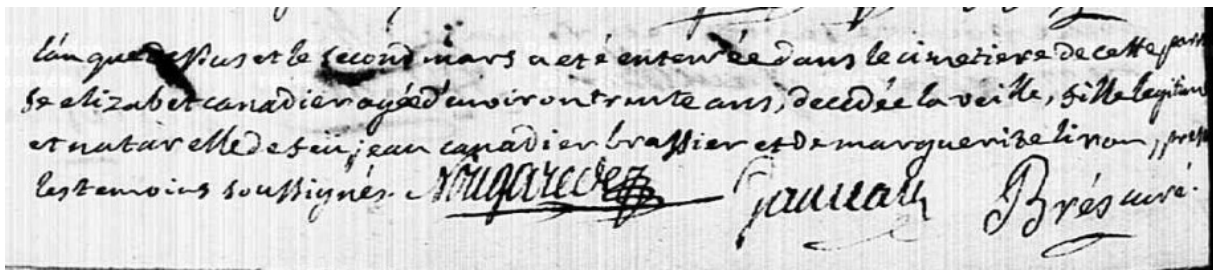 l'an que dessus et le second mars a eté enterrée dans le cimetiere de cette parois
se elizabet canadier agée d'environ trente ans, decedée la veille, fille legitime
et naturelle de feu jean canadier brassier et de marguerite liron, presens
les temoins soussignés. Nougarede Brés curé.